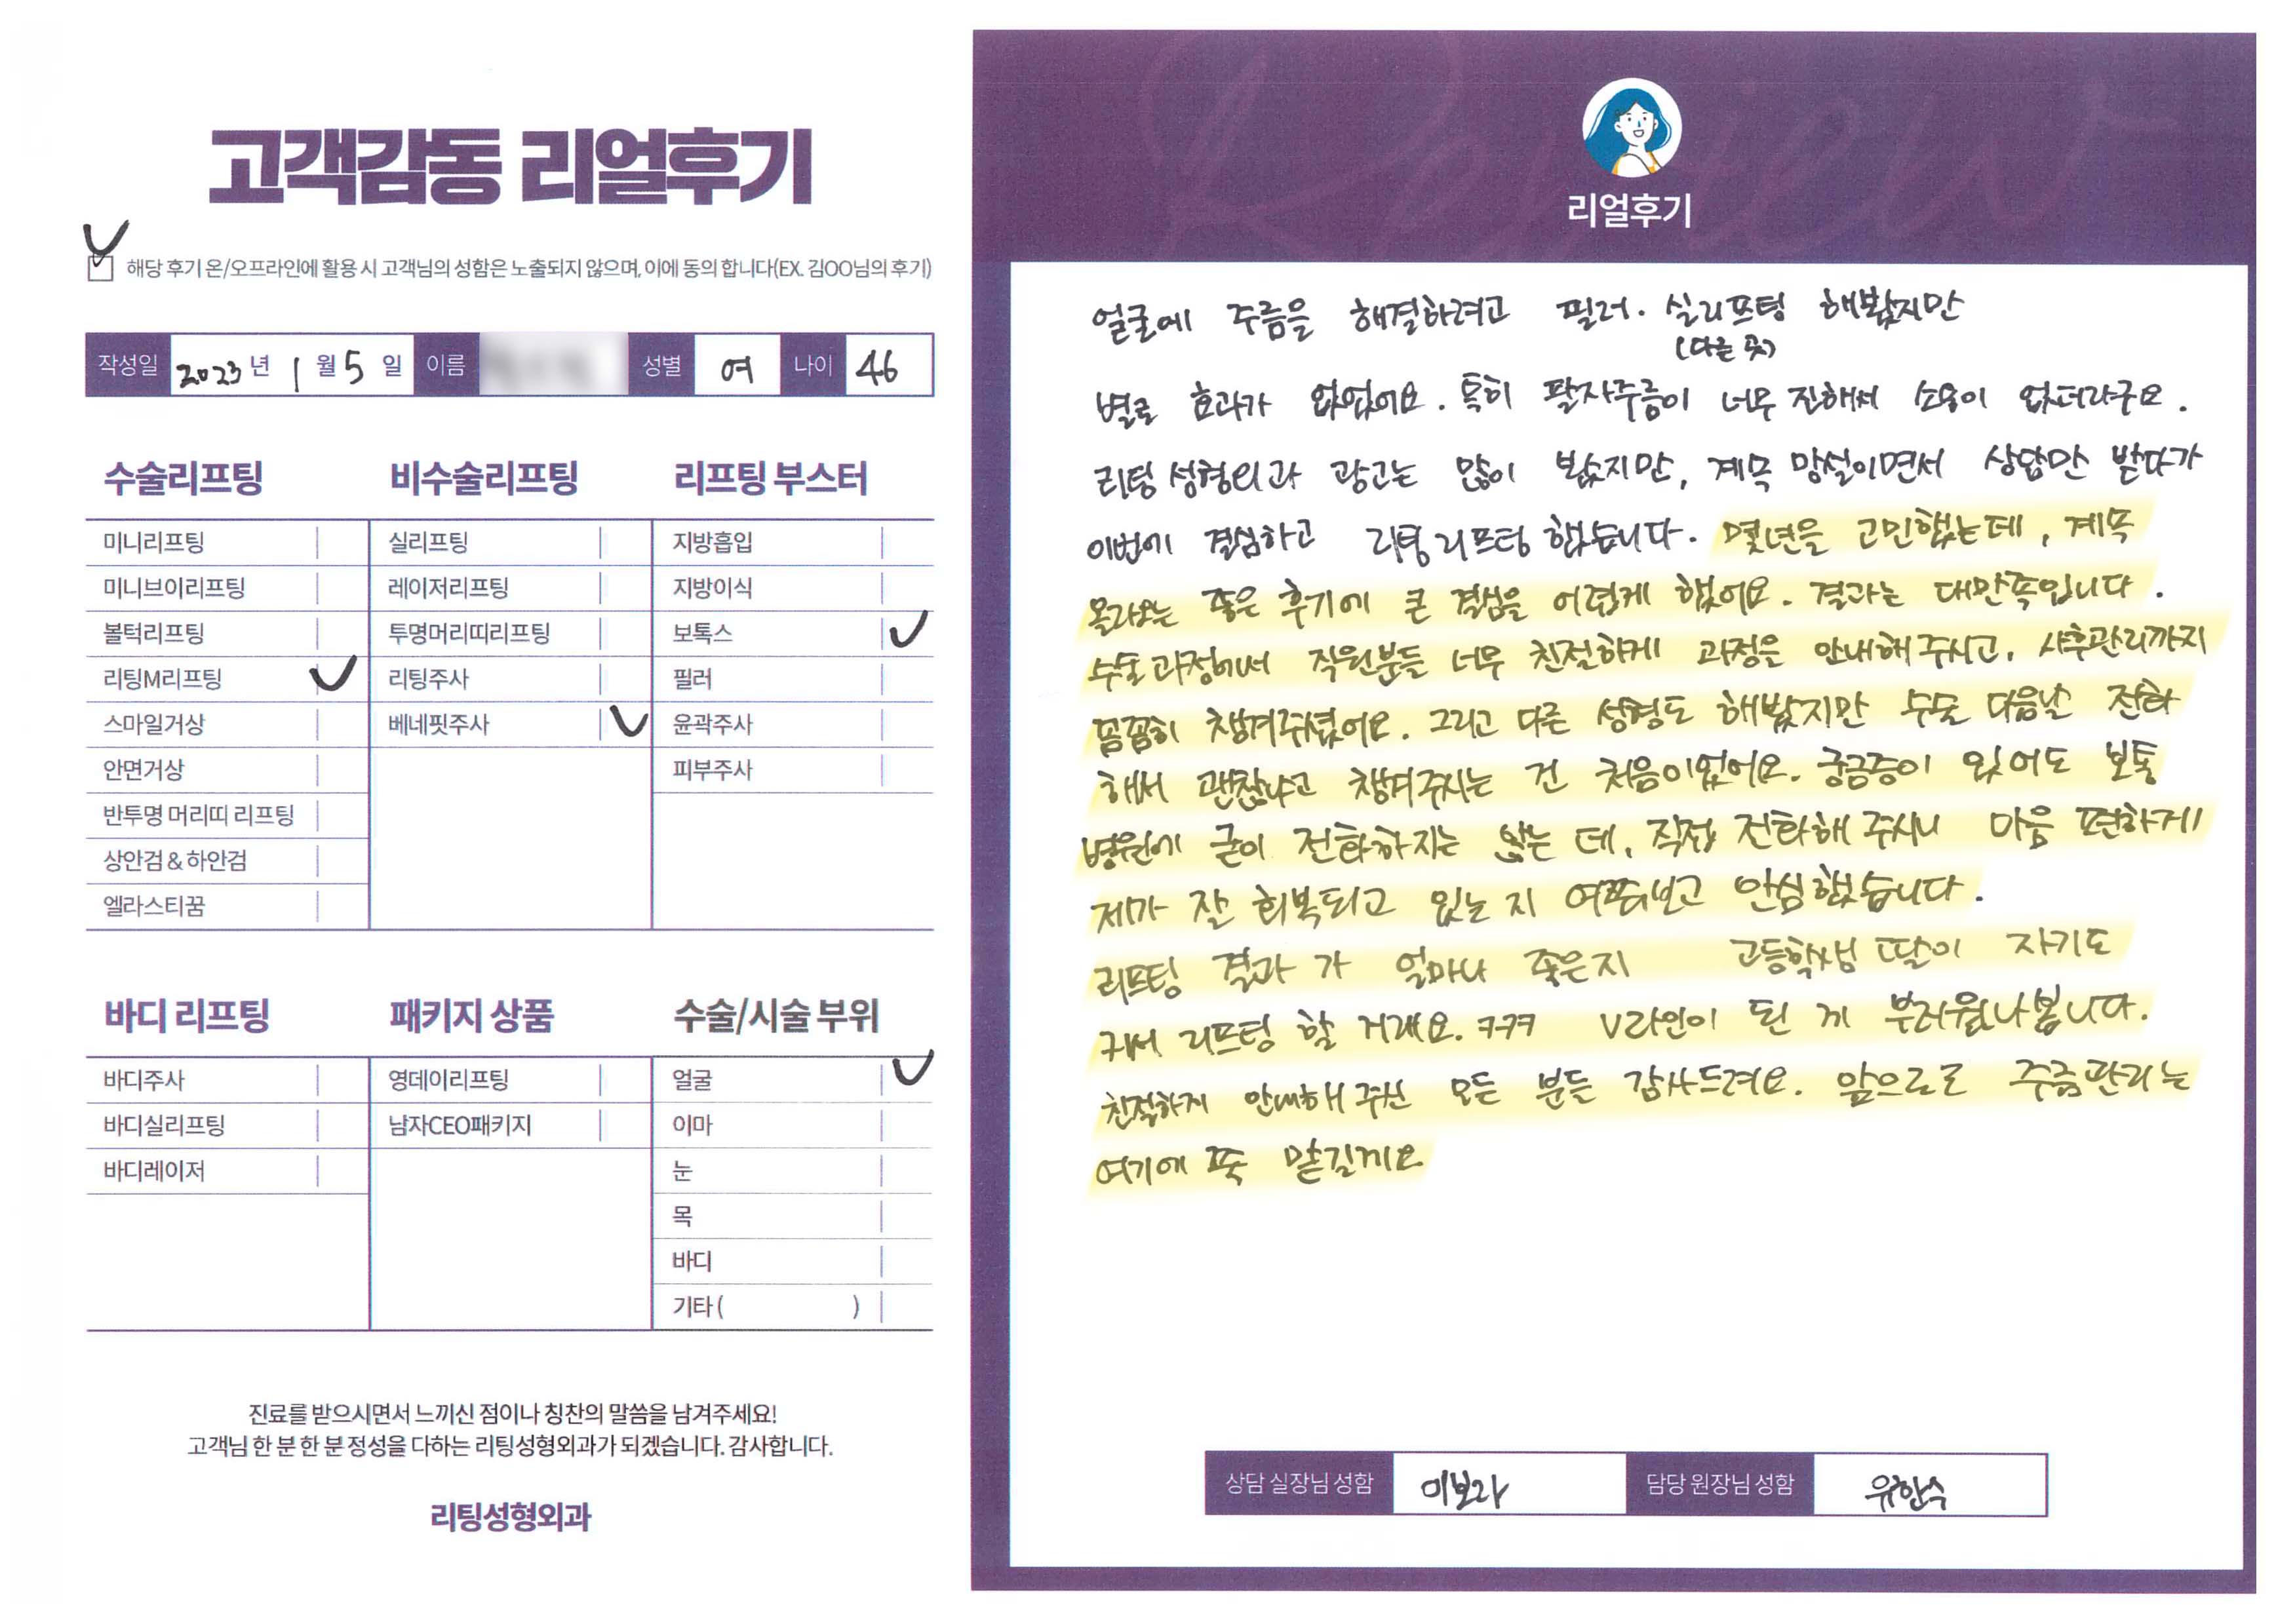 고객감동 리얼후기
해당 후기 온/오프라인에 활용 시 고객님의 성함은 노출되지 않으며, 이에 동의 합니다(EX. 김OO님의 후기)
작성일 2023년 1월 5일 이름 성별 여 나이 46
수술리프팅
미니리프팅
미니브이리프팅
볼턱리프팅
리팅M리프팅
스마일거상
안면거상
반투명 머리띠 리프팅
상안검 & 하안검
엘라스티꿈
비수술리프팅
실리프팅
레이저리프팅
투명머리띠리프팅
리팅주사
베네핏주사
리프팅 부스터
지방흡입
지방이식
보톡스
필러
윤곽주사
피부주사
바디 리프팅
바디주사
바디실리프팅
바디레이저
패키지 상품
영데이리프팅
남자CEO패키지
수술/시술 부위
얼굴
이마
눈
목
바디
기타 ( )
진료를 받으시면서 느끼신 점이나 칭찬의 말씀을 남겨주세요!
고객님 한 분 한 분 정성을 다하는 리팅성형외과가 되겠습니다. 감사합니다.
리팅성형외과
Review
리얼후기
얼굴에 주름을 해결하려고 필러. 실리프팅 해봤지만
(다른 곳)
별로 효과가 없었어요. 특히 팔자주름이 너무 진해서 소용이 없더라구요.
리팅 성형외과 광고는 많이 봤지만, 계속 망설이면서 상담만 받다가
이번에 결심하고 리팅리프팅 했습니다. 몇년을 고민했는데, 계속
올라오는 좋은 후기에 큰 결심을 어렵게 했어요. 결과는 대만족입니다.
수술과정에서 직원분들 너무 친절하게 과정은 안내해주시고, 사후관리까지
꼼꼼히 챙겨주셨어요. 그리고 다른 성형도 해봤지만 수술 다음날 전화
해서 괜찮냐고 챙겨주시는 건 처음이었어요. 궁금증이 있어도 보통
병원에 굳이 전화하지는 않는 데, 직접 전화해 주시니 마음 편하게
제가 잘 회복되고 있는 지 여쭤보고 안심했습니다.
리프팅 결과가 얼마나 좋은지 고등학생 딸이 자기도
커서 리프팅 할 거래요. ㅋㅋㅋ V라인이 된 게 부러웠나봅니다.
친절하게 안내해주신 모든 분들 감사드려요. 앞으로도 주름관리는
여기에 쭉 맡길게요
상담 실장님 성함 이보라 담당 원장님 성함 유한수